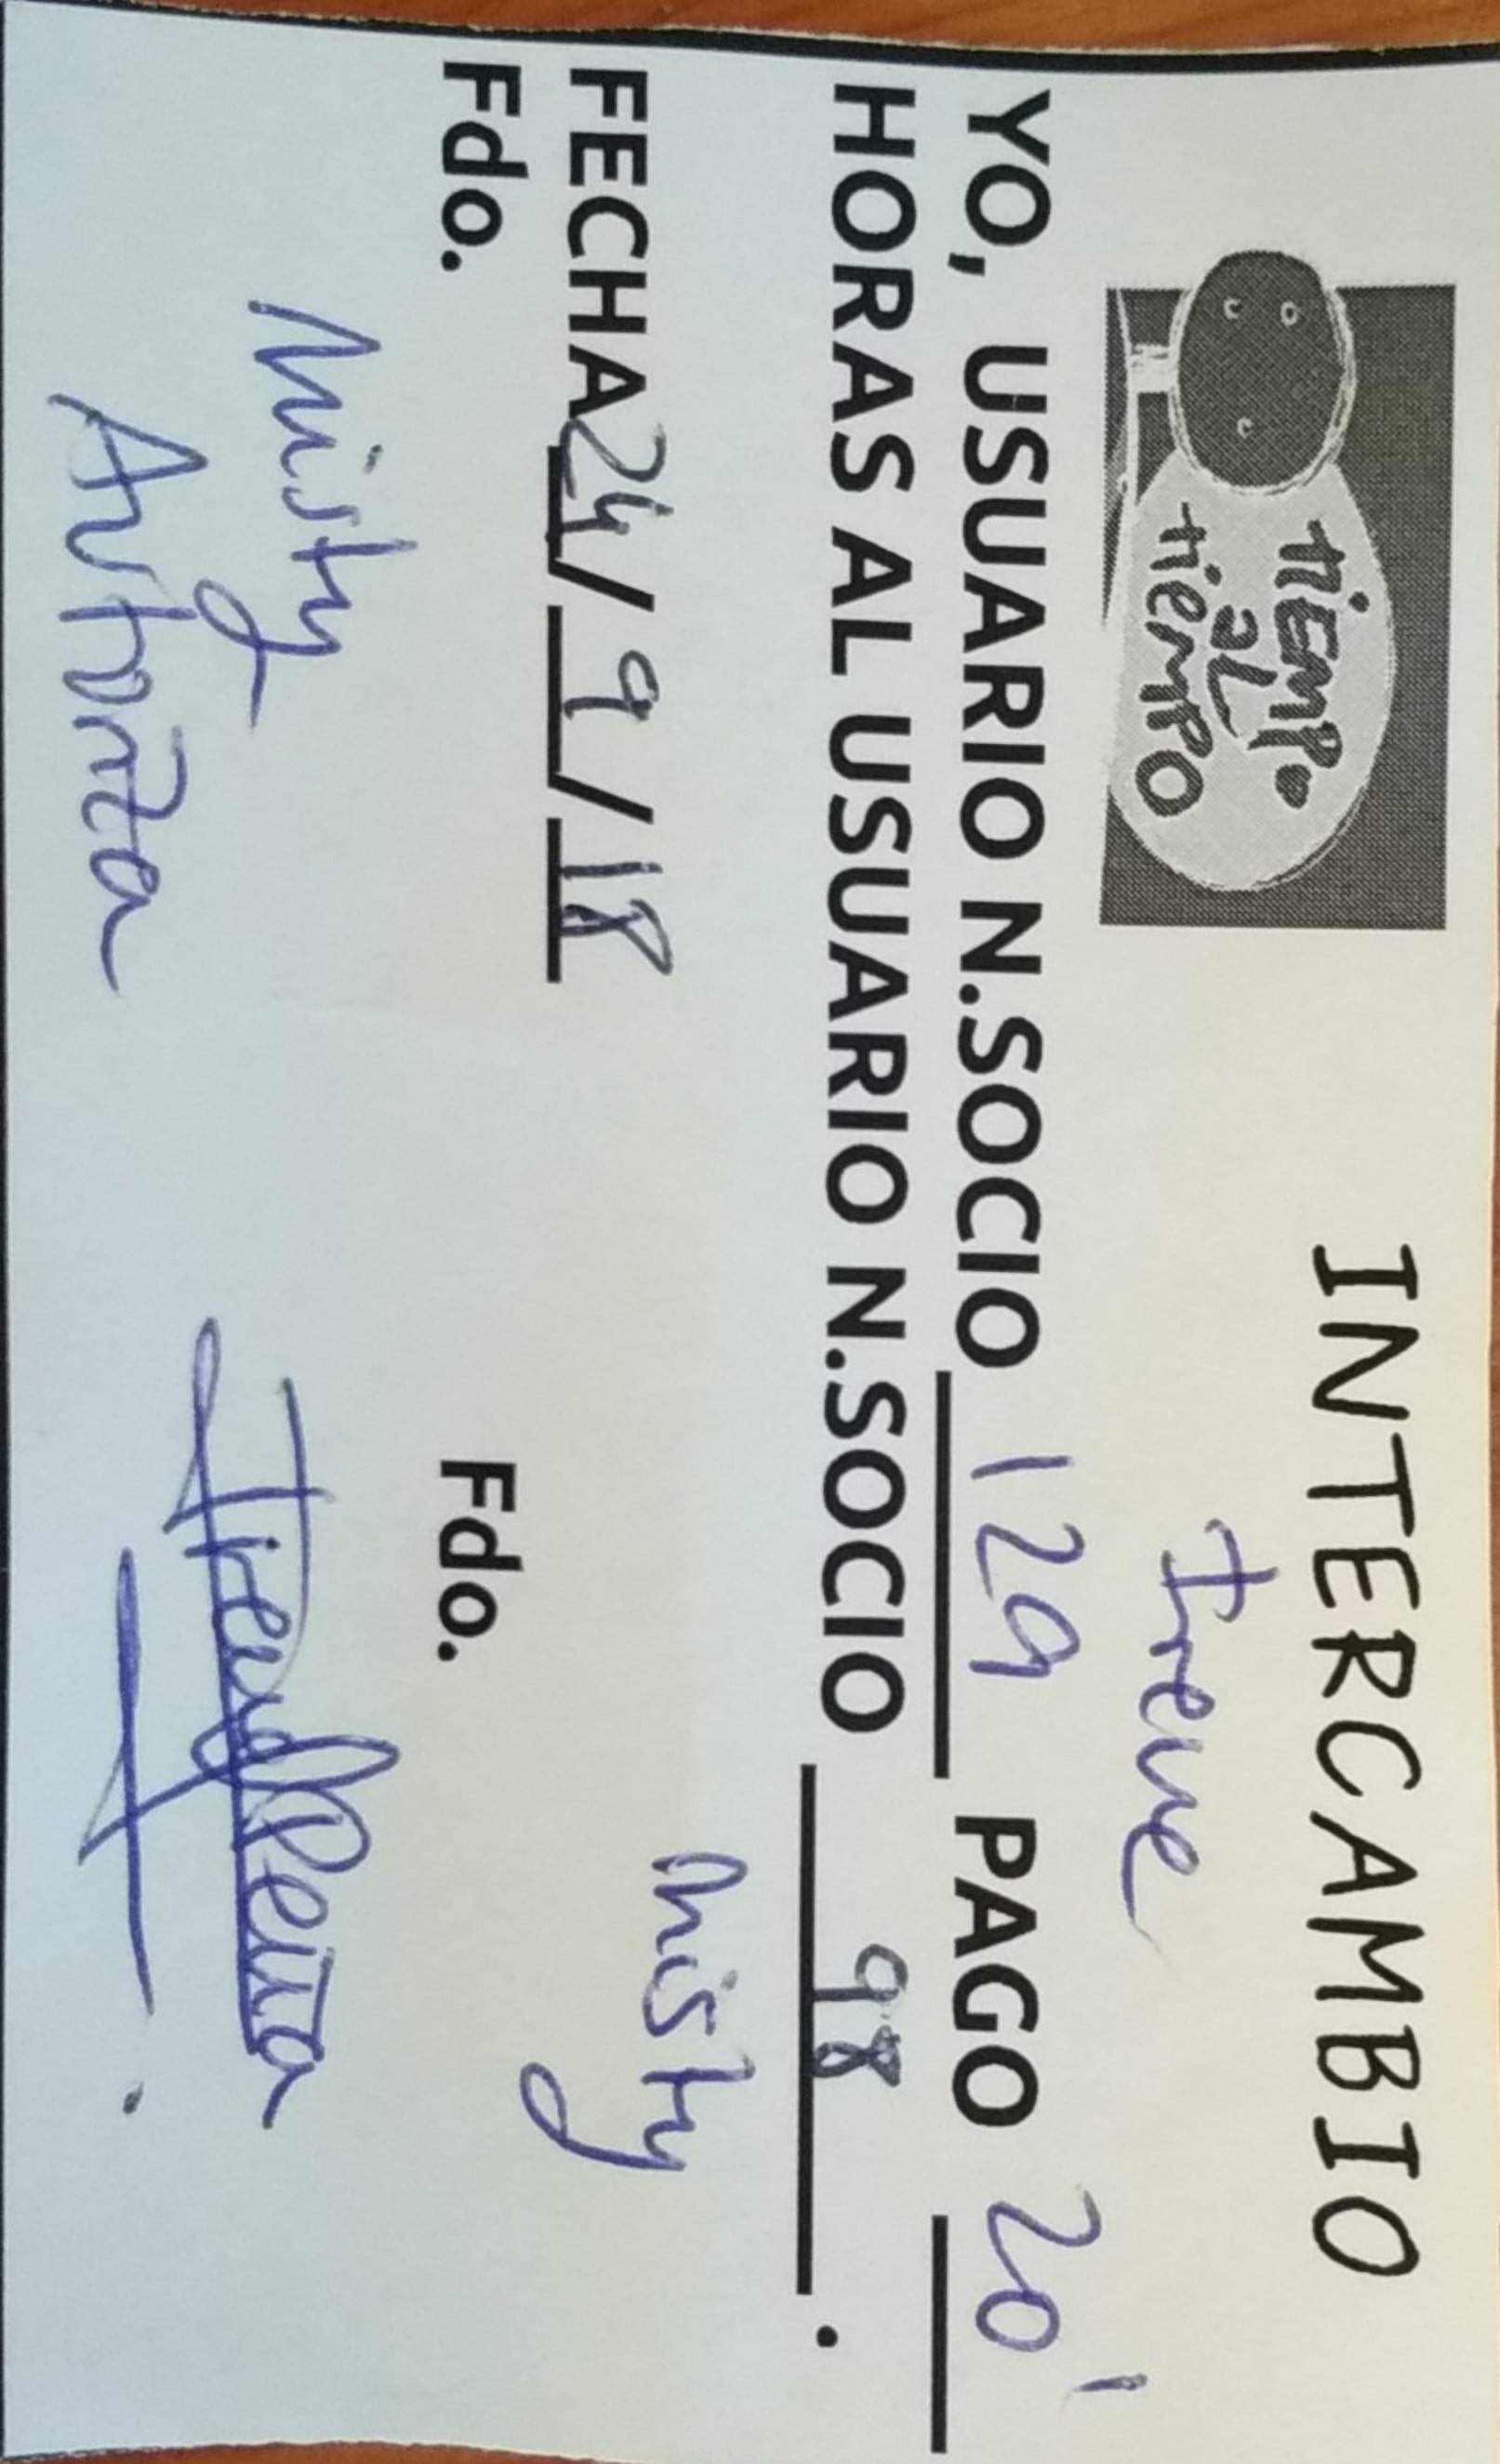 tiempo
al
tiempo
INTERCAMBIO
Irene
YO, USUARIO N.SOCIO 129 PAGO 20'
HORAS AL USUARIO N.SOCIO 98.
Misty
FECHA 24/9/18
Fdo. Fdo.
Misty
Autoriza
Irene Peña